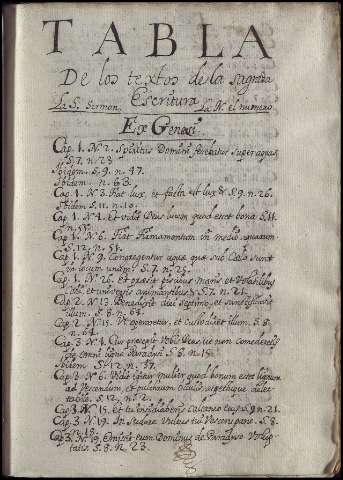 TABLA
De los textos de la Sagrada
Escritura
La S. Sermon. La N. el numero
Ex Genesi.
Cap. 1. N. 2. Spiritus Domini ferebatur super aquas
S. 7. n. 23
Ibidem. S. 9. n. 47.
Ibidem n. 68.
Cap. 1. N. 3. Fiat lux, et facta est lux S. 9. n. 26.
Ibidem S. 11. n. 18.
Cap. 1. N. 4. Et vidit Deus lucem quod esset bona S. 11.
Cap. 1. N. 6. Fiat Firmamentum in medio aquarum
S. 12. n. 51.
Cap. 1. N. 9. Congregentur aquæ quæ sub Cælo sunt
in locum unum S. 7. n. 25.
Cap. 1. N. 26. Et præsit piscibus maris, et volatilibus
et universis animantibus S. 7. n. 21.
Cap. 2. N. 13. Benedixit diei septimo, et sanctificavit
illum. S. 8. n. 64.
Cap. 2. N. 15. Ut operaretur, et custodiret illum. S. 8.
n. 64.
Cap. 3. N. 1. Cur præcepit vobis Deus ut non comederetis
ex omni ligno Paradisi S. 8. n. 15.
Ibidem S. 12. n. 57.
Cap. 3. N. 6. Vidit igitur mulier quod bonum esset lignum
ad vescendum, et pulchrum oculis, aspectuque delec-
tabile. S. 12. n. 2.
Cap. 3. N. 15. Et tu insidiaberis calcaneo ejus S. 9. n. 21.
Cap. 3. N. 19. In sudore vultus tui vesceris pane. S. 8.
n. 18.
Cap. 3. N. 19. Emisit eum Dominus de Paradiso volup-
tatis. S. 8. N. 23.